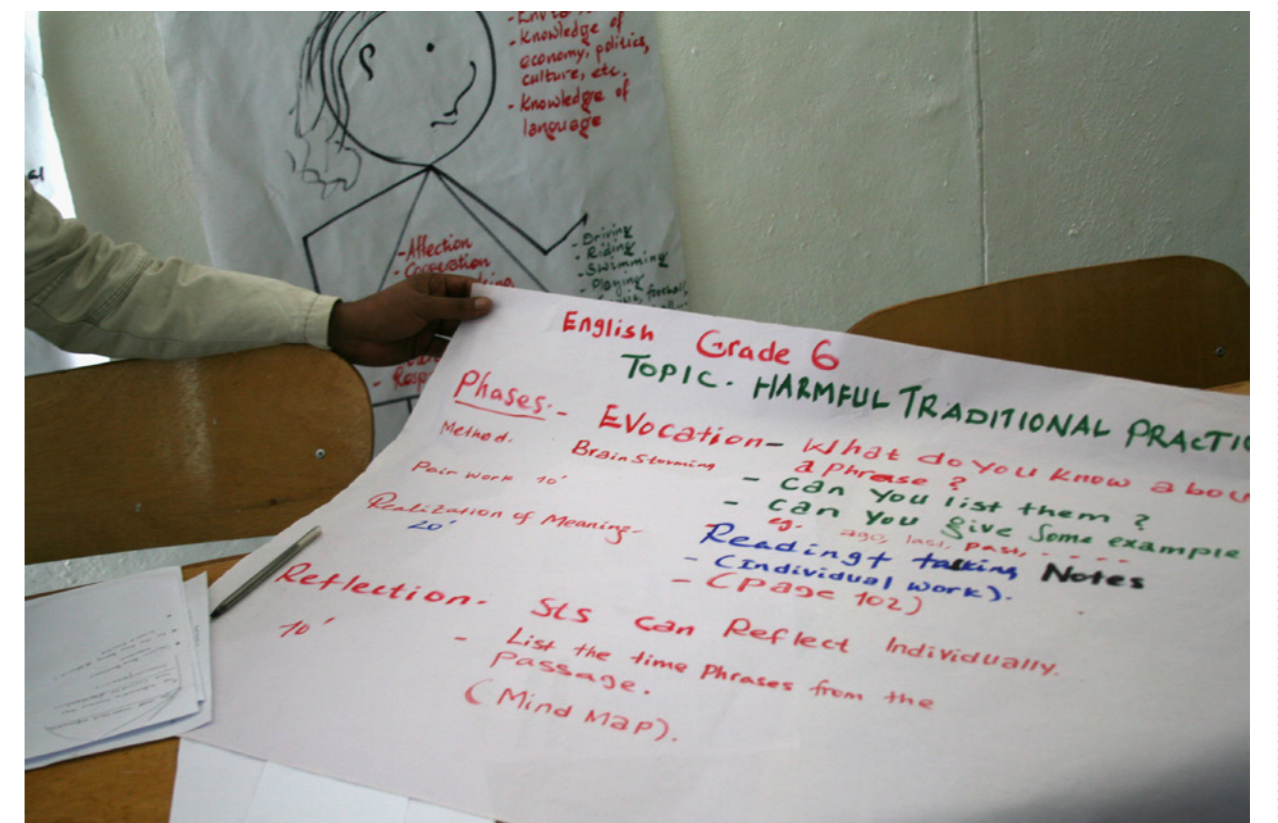 - Knowledge of
economy, politics,
culture, etc.
- Knowledge of
language
- Affection
- Cooperation
- Driving
- Riding
- Swimming
- Playing
football
English Grade 6
TOPIC. HARMFUL TRADITIONAL
Phases:- Evocation- What do you know
a phrase ?
Method. Brain Storming
- can you list them ?
Pair work 10'
- can you give some example
eg. ago, last, past, - - - -
Realization of Meaning- Reading + talking Notes
20'
- (Individual work).
- (Page 102)
Reflection- Sts can Reflect Individually.
10'
- List the time Phrases from the
Passage.
(Mind Map).